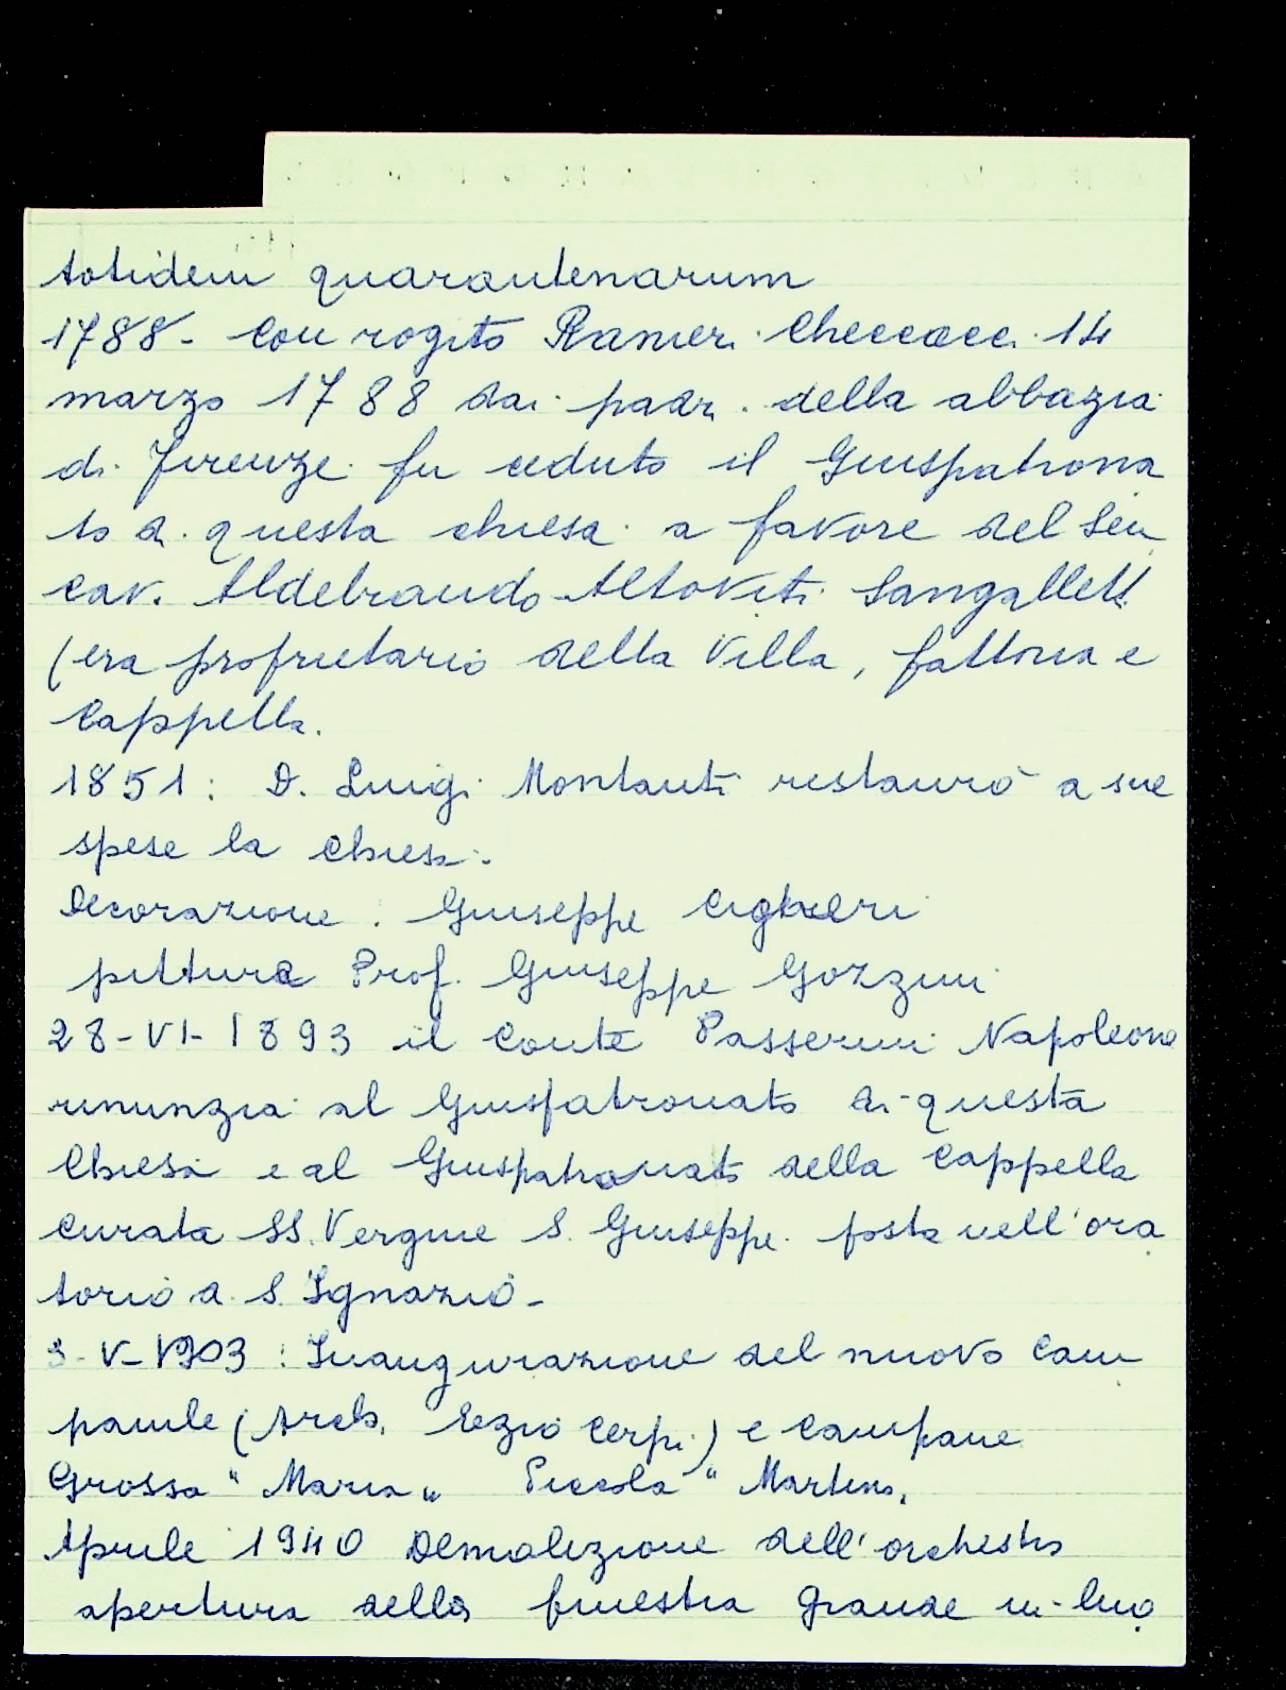 totidem quarantenarum
1788 - Con rogito Ranieri Checcacci 14
marzo 1788 dai padri della abbazia
di Firenze fu ceduto il Giuspatrona
to di questa chiesa a favore del Sen
Cav. Aldebrando Altoviti Sangalletti
(era proprietario della Villa, fattoria e
Cappella.
1851: D. Luigi Montauti restaurò a sue
spese la Chiesa.
Decorazione. Giuseppe
pittura Prof. Giuseppe Gozzini
28-VI-1893 il Conte Passerini Napoleone
rinunzia al Giuspatronato di questa
Chiesa e al Giuspatronato della Cappella
Curata SS. Vergine S. Giuseppe posta nell'ora
torio di S. Ignazio -
3-V-1903: Inaugurazione del nuovo Cam
panile (Arch. Ezio Cerpi) e Campane
Grossa "Maria" Piccola "Martino,
Aprile 1940 Demolizione dell'orchestra
apertura della finestra grande in-luo